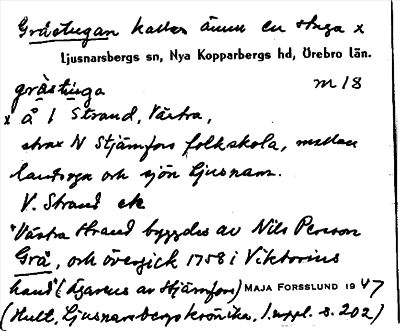 Gråstugan kallas ännu en stuga x
Ljusnarsbergs sn, Nya Kopparbergs hd, Örebro län.
gràstùga m 18
x å 1 Strand, Västra,
strax N Stjärnfors folkskola, mellan
landsväga och sjön Ljusnarn.
V. Strand ek
"Västra Strand byggdes av Nils Persson
Grå, och övergick 1758 i Viktorins
hand" (ägarens av Stjärnfors) MAJA FORSSLUND 1947
(Hult, Ljusnarsbergs krönika, 1. uppl. s. 202)